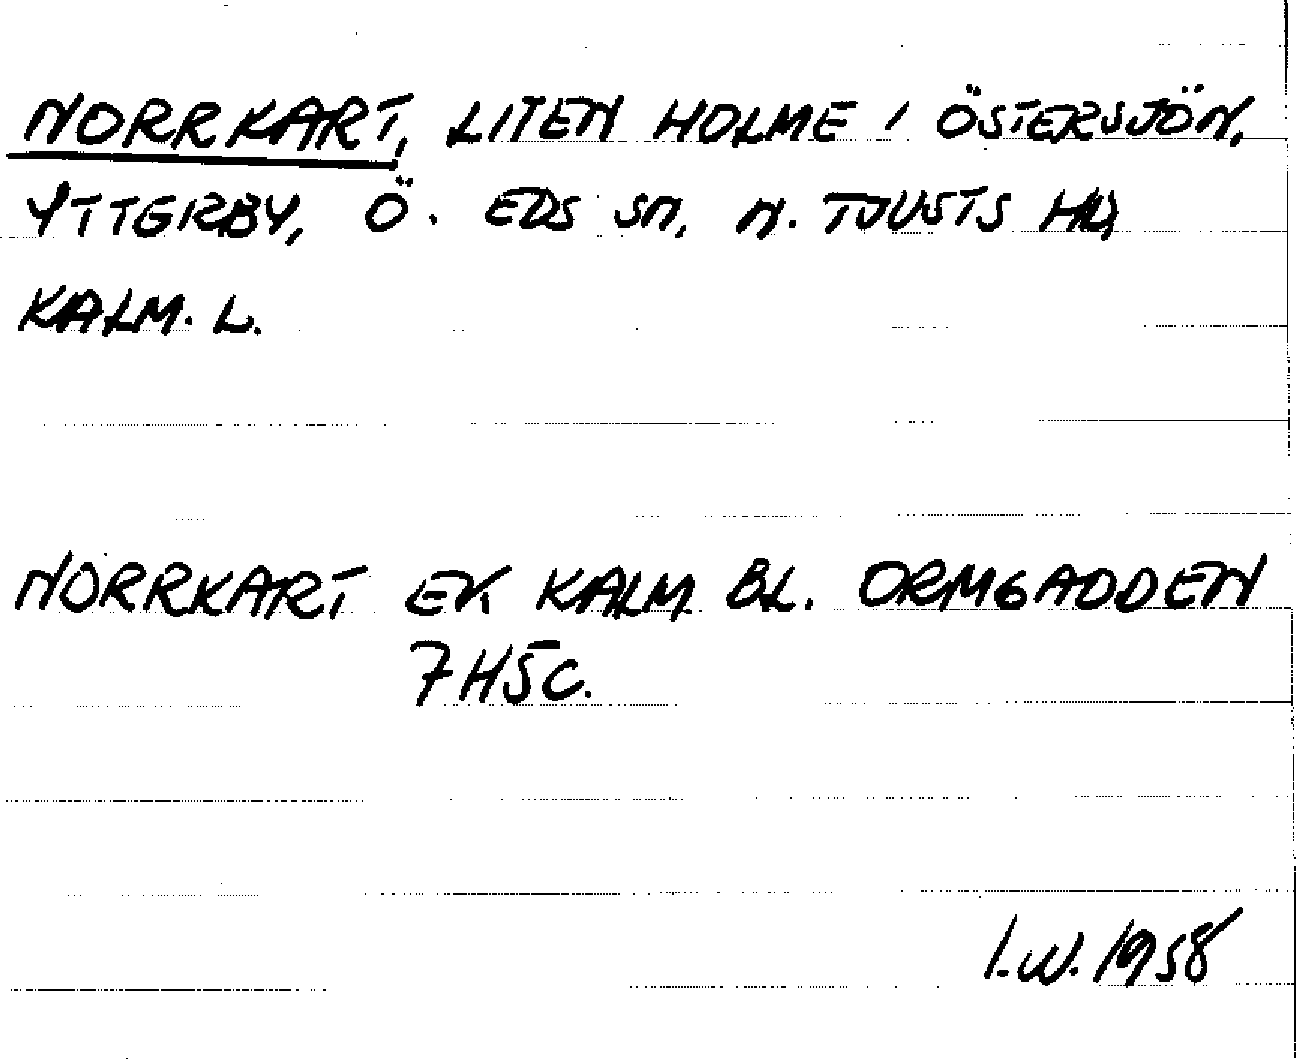 NORRKART, LITEN HOLME I ÖSTERSJÖN,
YTTERBY, Ö. EDS SN, N. TJUSTS HD,
KALM. L.
NORRKART EK KALM BL. ORMGADDEN
7H5C.
I.W. 1958